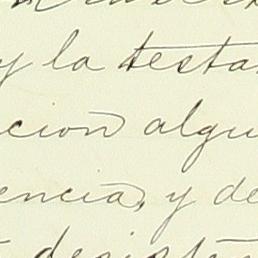 y la testa
cion algu
encia, y de